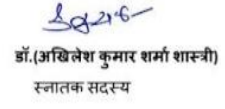 डॉ.(अखिलेश कुमार शर्मा शास्त्री)
स्नातक सदस्य